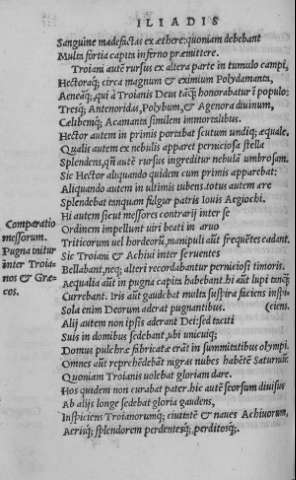 ILIADIS
Sanguine madefactas ex æthere: quoniam debebant
Multa fortia capita inferno præmittere.
Troiani autē rursus ex altera parte in tumulo campi,
Hectoraq́; circa magnum & eximium Polydamanta,
Aeneāq́;, qui à Troianis Deus tāq̃ honorabatur ĩ populo:
Tresq́; Antenoridas, Polybum, & Agenora diuinum,
Cælibemq́; Acamanta similem immortalibus.
Hector autem in primis portabat scutum undiq; æquale.
Qualis autem ex nebulis apparet perniciosa stella
Splendens, qñ autē rursus ingreditur nebulā umbrosam.
Sic Hector aliquando quidem cum primis apparebat:
Aliquando autem in ultimis iubens. totus autem ære
Splendebat tanquam fulgur patris Iouis Aegiochi.
Hi autem sicut messores contrarij inter se
Comparatio
Ordinem impellunt uiri beati in aruo
messorum.
Triticorum uel hordeorū, manipuli aūt frequētes cadant.
Pugna initur
Sic Troiani & Achiui inter se ruentes
inter Troia-
Bellabant, neq; alteri recordabantur perniciosi timoris.
nos & Græ-
Aequalia aūt in pugna capita habebant. hi aūt lupi tanq̃
cos.
Currebant. iris aūt gaudebat multa suspiria faciens inspi-
Sola enim Deorum aderat pugnantibus. (ciens.
Alij autem non ipsis aderant Dei: sed taciti
Suis in domibus sedebant, ubi unicuiq;
Domus pulchræ fabricatæ erāt in summitatibus olympi.
Omnes aūt reprehēdebāt nigras nubes habētē Saturniũ
Quoniam Troianis uolebat gloriam dare.
Hos quidem non curabat pater. hic autē seorsum diuisus
Ab alijs longe sedebat gloria gaudens,
Inspiciens Troianorumq́; ciuitatē & naues Achiuorum,
Aerisq́; splendorem perdentesq́;, perditosq́;.